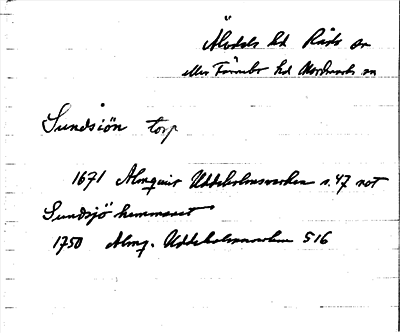 Älvdals hd Råda sn
eller Färnebo hd Nordmark sn
Sundsjön torp
1671 Almquist Uddeholmsverken s. 47 not
Sundsjö hemmanet
1750 Almq. Uddeholmsverken 516